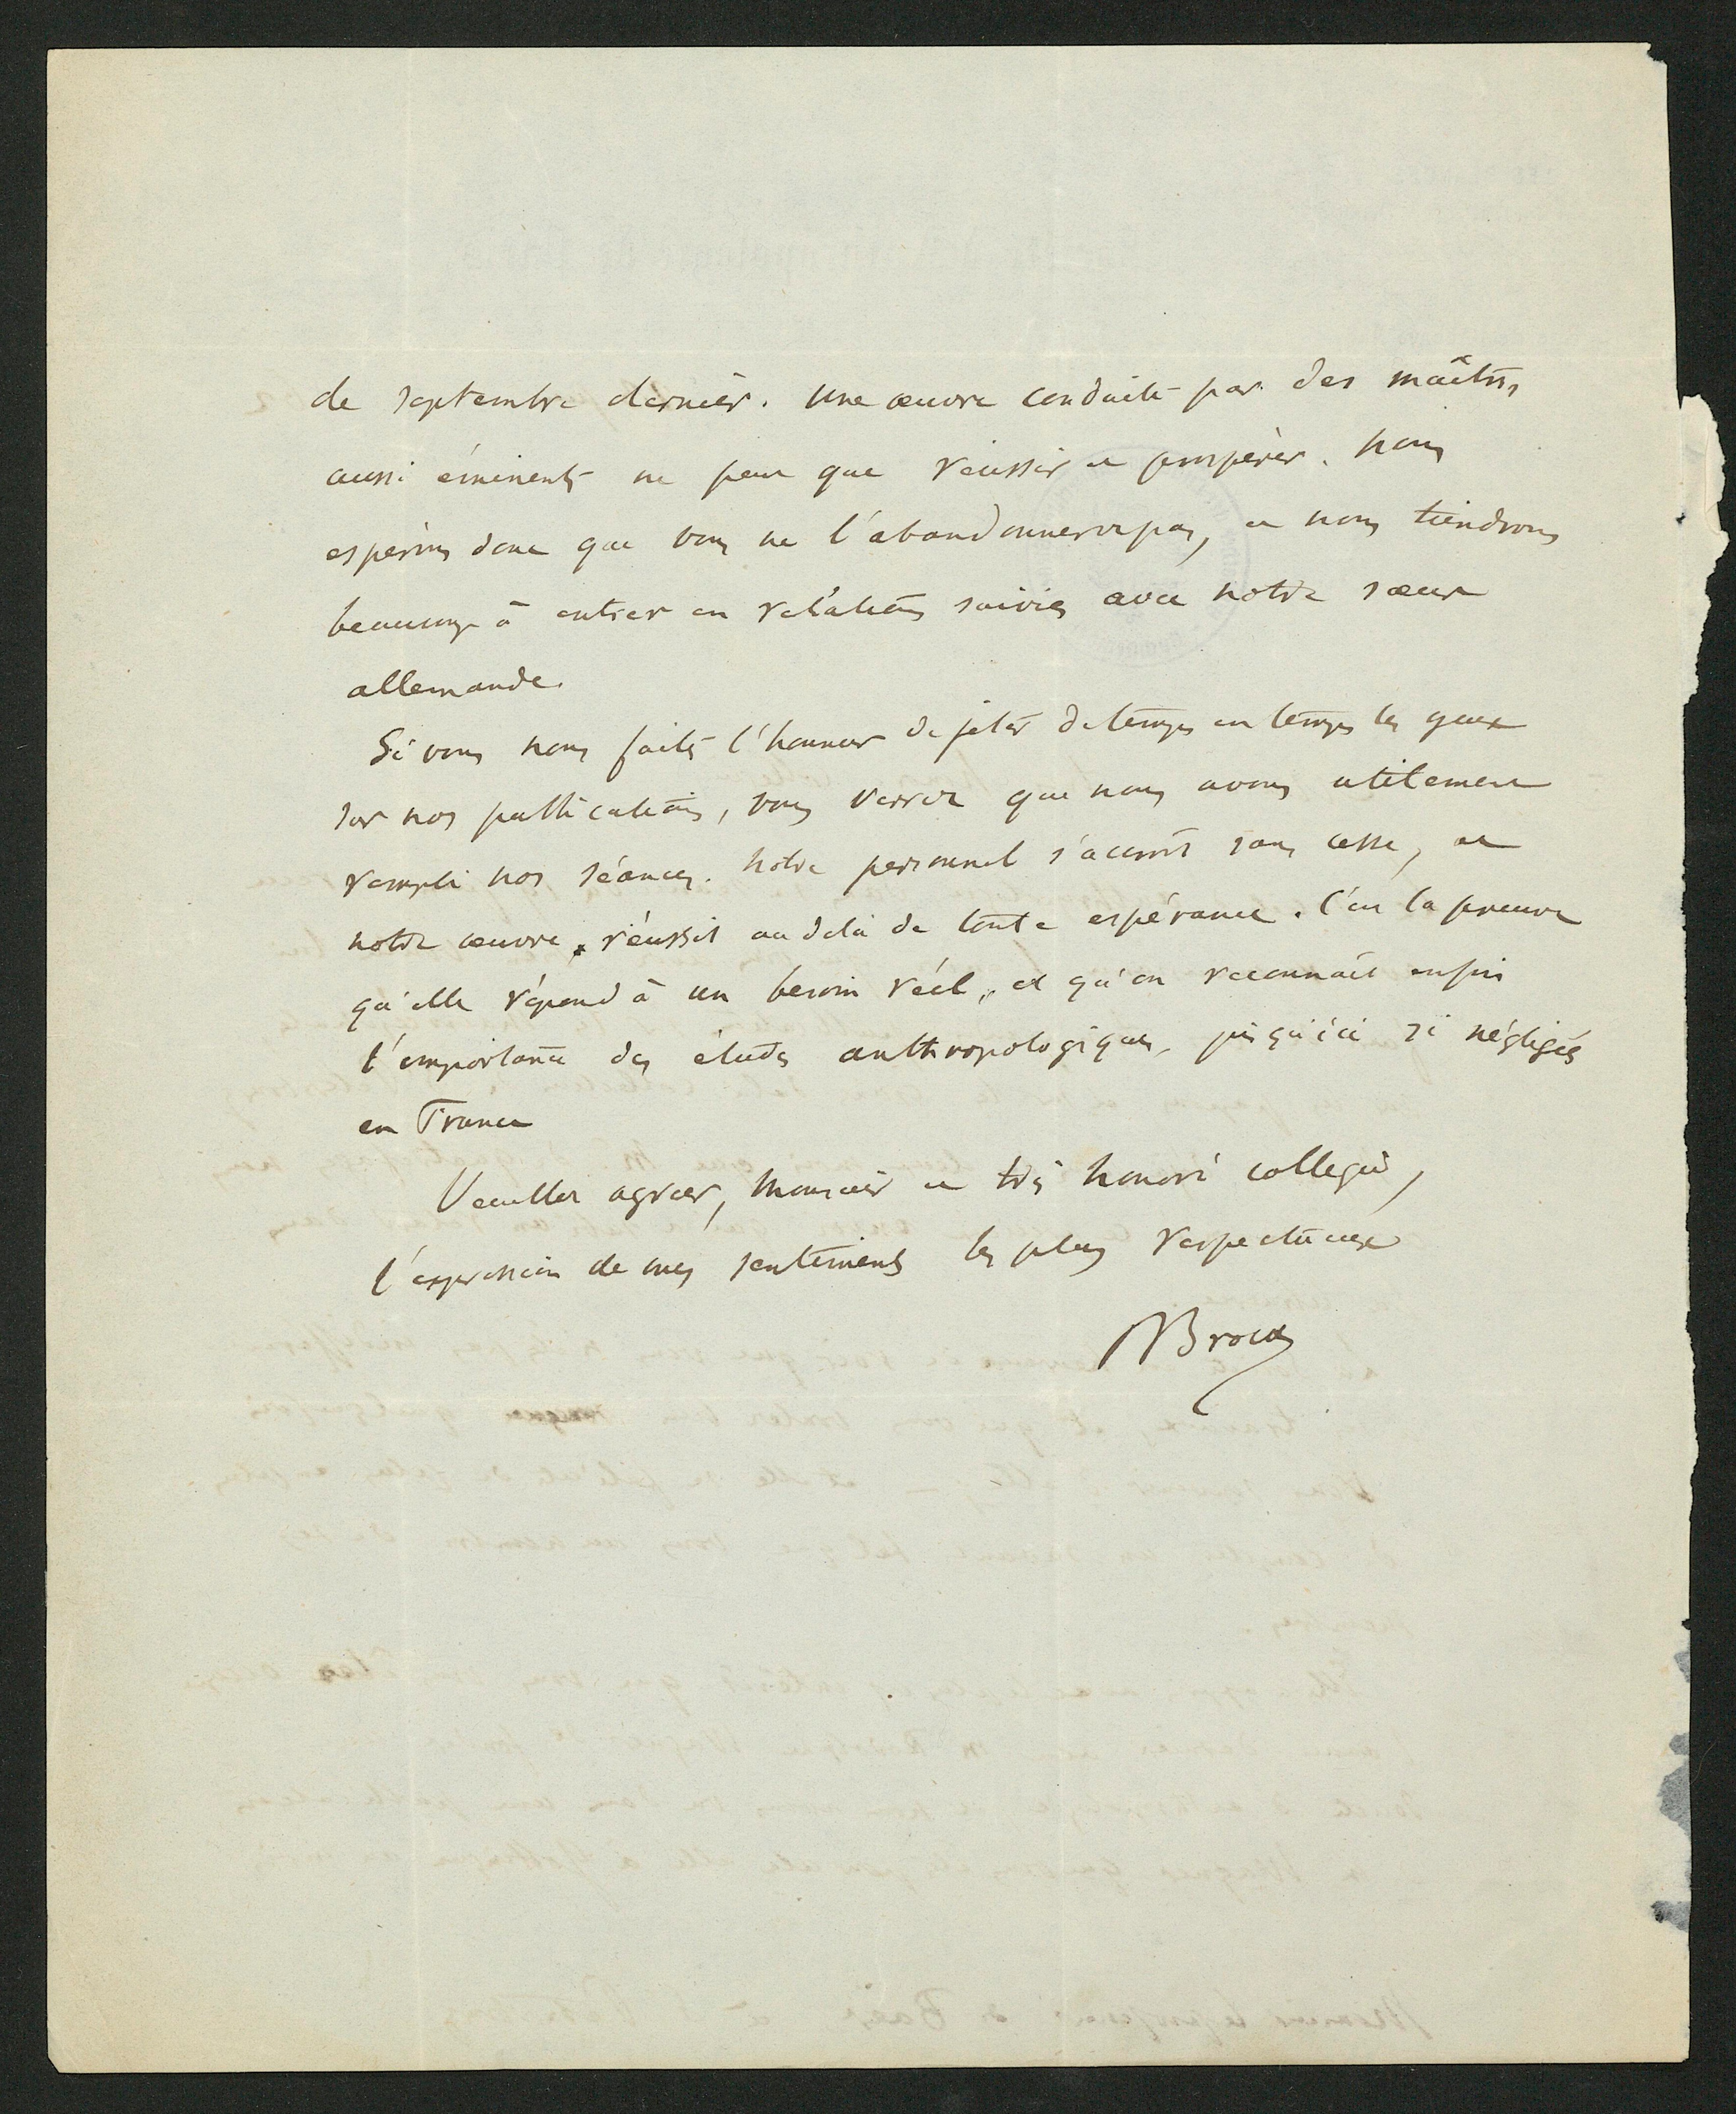 de septembre dernier. Une œuvre conduite par des maîtres
aussi éminents ne peut que réussir et prospérer. Nous
espérons donc que vous ne l'abandonnerez pas, et nous tiendrons
beaucoup à entrer en relations suivies avec notre sœur
allemande.
Si vous nous faites l'honneur de jeter de temps en temps les yeux
sur nos publications, vous verrez que nous avons utilement
rempli nos séances. Notre personnel s'accroît sans cesse, et
notre œuvre réussit au delà de toute espérance. C'est la preuve
qu'elle répond à un besoin réel, et qu'on reconnaît enfin
l'importance des études anthropologiques, jusqu'ici si négligées
en France
Veuillez agréer, Monsieur et très honoré collègue,
l'expression de mes sentiments les plus respectueux
PBroca